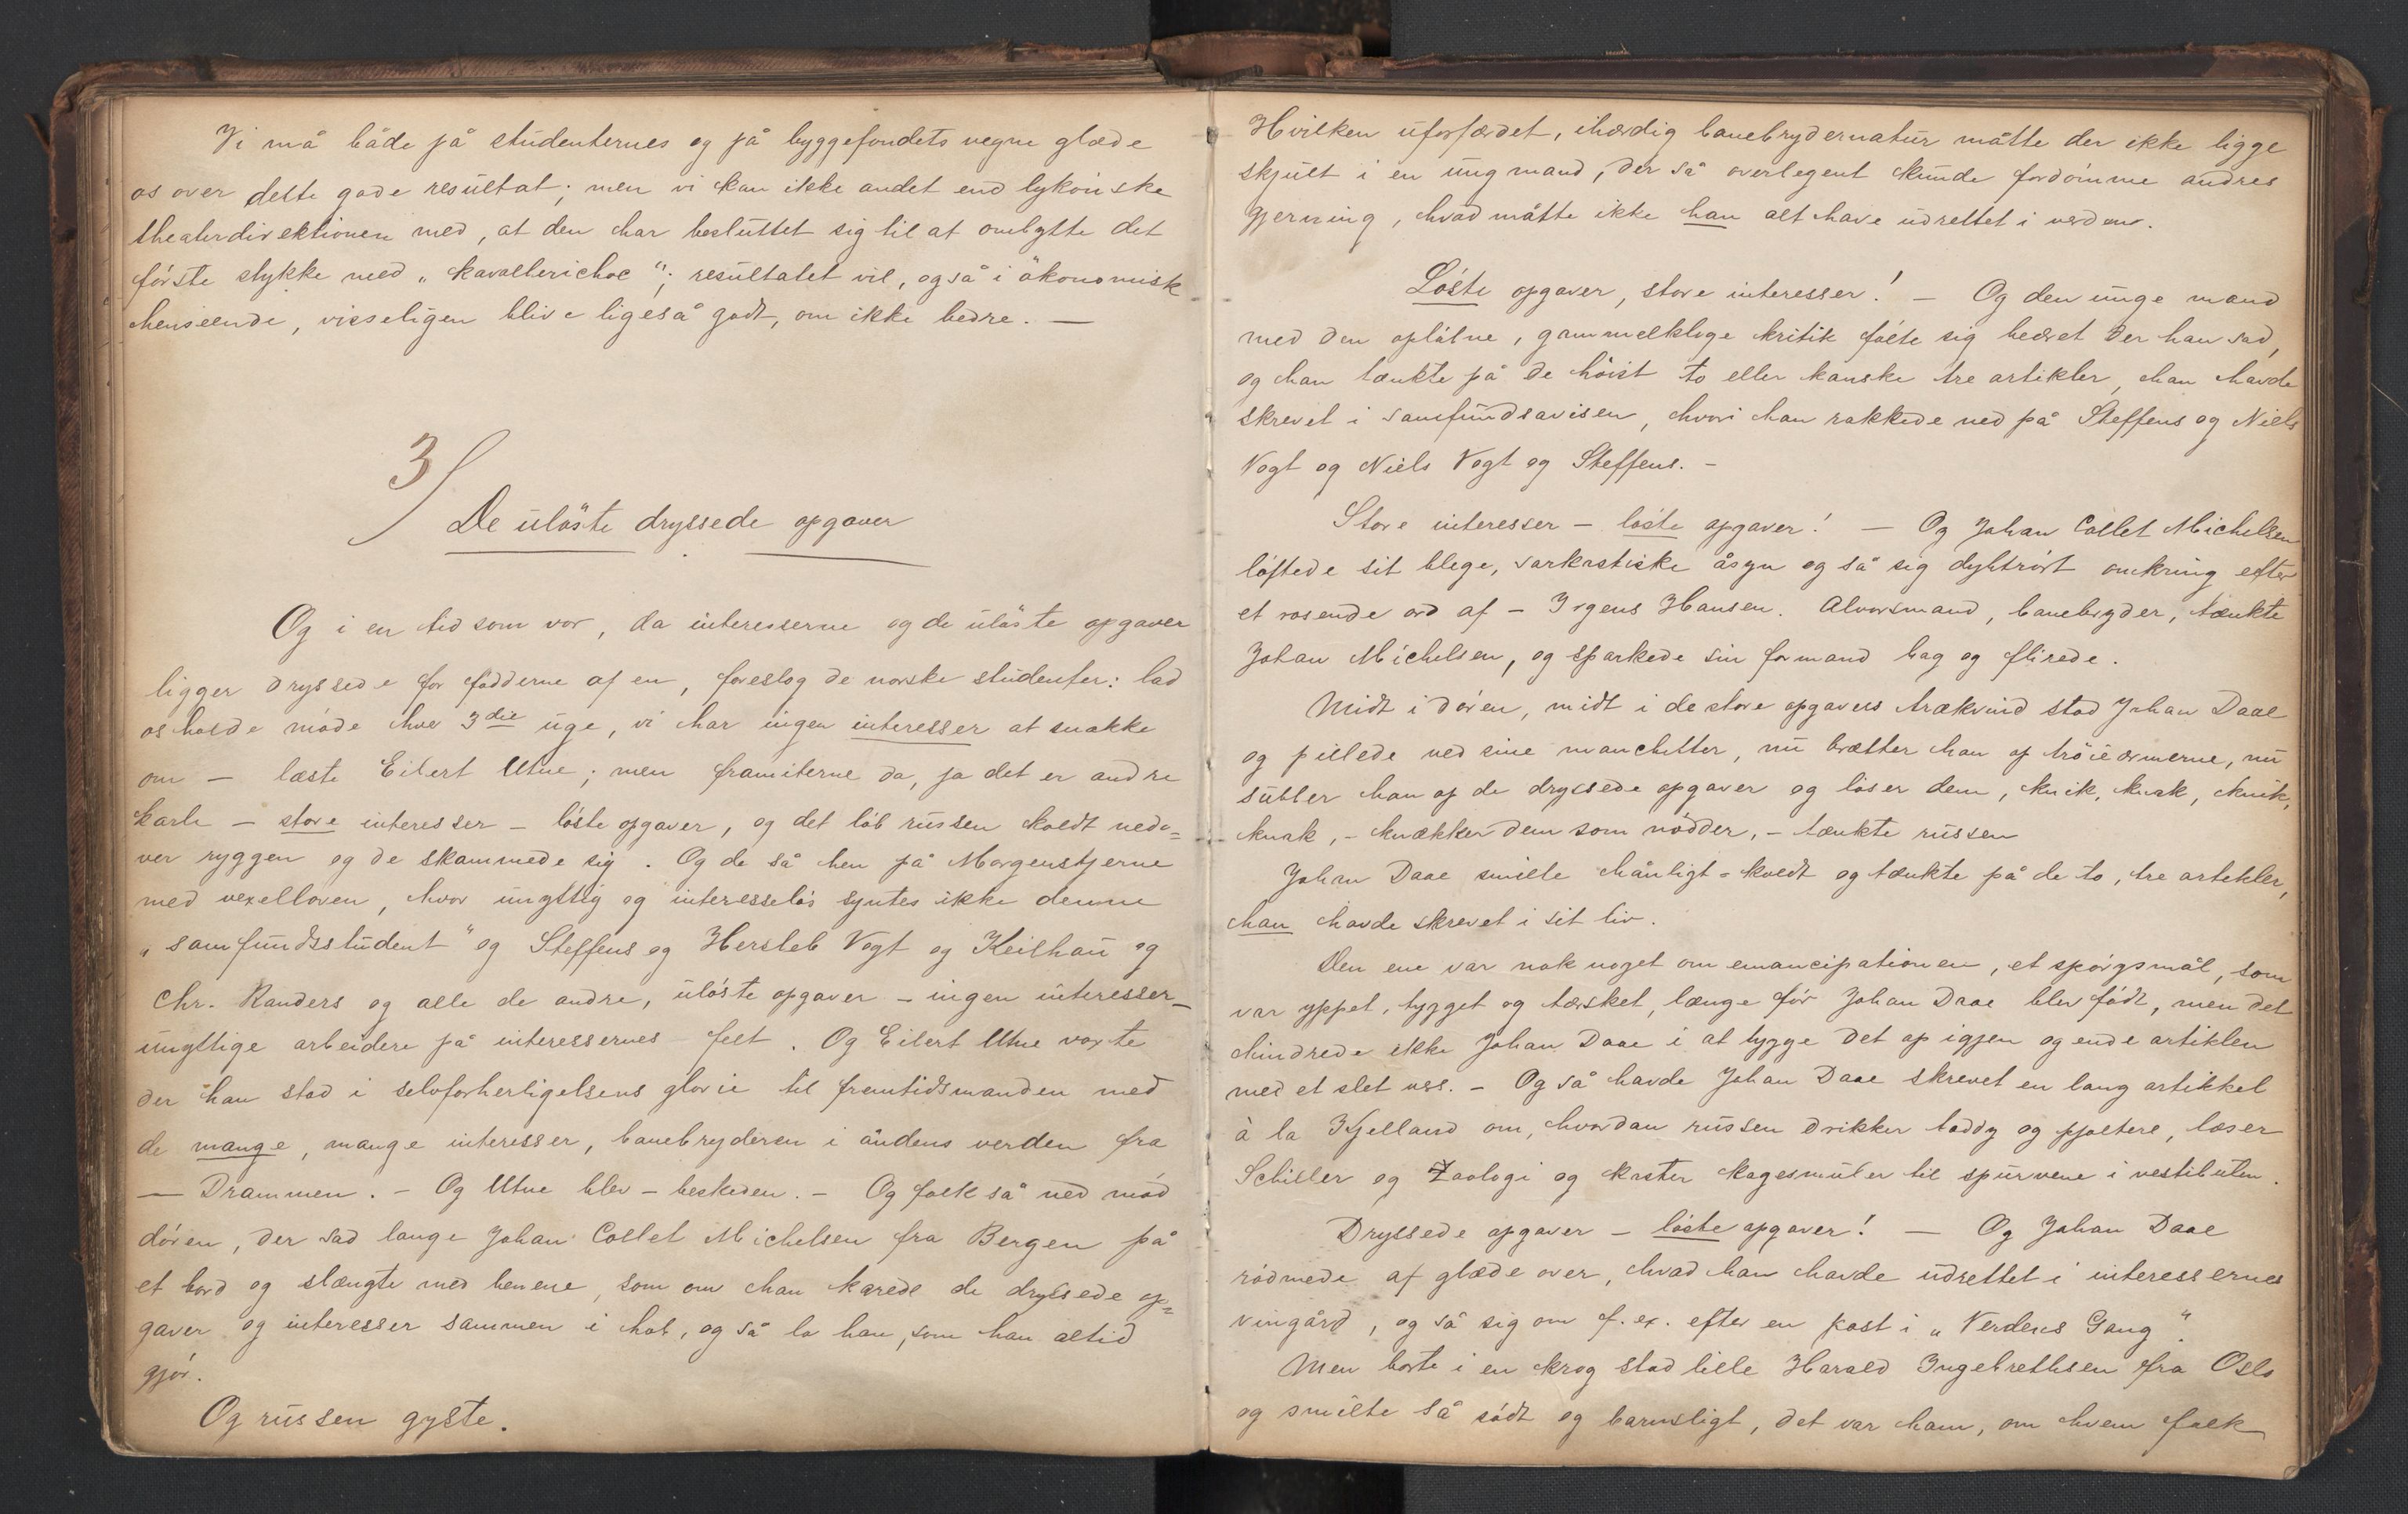 Vi må både på studenternes og på byggefondets vegne glæde
os over dette gode resultat; men vi kan ikke andet end lykönske
theaterdirektionen med, at den har besluttet sig til at ombytte det
förste stykke med „kavallerichoc“; resultatet vil, også i ökonomisk
henseende, visseligen blive ligeså godt, om ikke bedre. —
3/
De ulöste dryssede opgaver
Og i en tid som vor, da interesserne og de ulöste opgaver
ligger dryssede for födderne af en, foreslog de norske studenter: lad
os holde möde hver 3die uge, vi har ingen interesser at snakke
om — læste Eilert Utne; men framiterne da, ja det er andre
karle — store interesser — löste opgaver, og det löb russen koldt nedo=
ver ryggen og de skammede sig. Og de så hen på Morgenstjerne
med vexelloven, hvor unyttig og interesselös syntes ikke denne
„samfundsstudent“ og Steffens og Hersleb Vogt og Keilhau og
Chr. Randers og alle de andre, ulöste opgaver — ingen interesser —
unyttige arbeidere på interessernes felt. Og Eilert Utne voxte
der han stod i selvforherligelsens glorie til fremtidsmanden med
de mange, mange interesser, banebryderen i åndens verden fra
— Drammen. — Og Utne blev — beskeden. — Og folk så ned mod
dören, der sad lange Johan Collet Michelsen fra Bergen på
et bord og slængte med benene, som om han karede de dryssede op=
gaver og interesser sammen i hob, og så lo han, som han altid
gjör.
Og russen gyste.
Hvilken uforfærdet, ihærdig banebrydernatur måtte der ikke ligge
skjult i en ung mand, der så overlegent kunde fordömme andres
gjerning, hvad måtte ikke han alt have udrettet i verden.
Löste opgaver, store interesser! — Og den unge mand
med den oplåtne, gammelkloge kritik fölte sig hedret der han sad,
og han tænkte på de höist to eller kanske tre artikler, han havde
skrevet i samfundsavisen, hvori han rakkede ned på Steffens og Niels
Vogt og Niels Vogt og Steffens. —
Store interesser — löste opgaver! — Og Johan Collet Michelsen
löftede sit blege, sarkastiske åsyn og så sig dybtrört omkring efter
et rosende ord af — Irgens Hansen. Alvorsmand, banebryder, tænkte
Johan Michelsen, og sparkede sin formand bag og flirede.
Midt i dören, midt i de store opgavers trækvind stod Johan Daae
og pillede ved sine manchetter, nu brætter han op tröieærmerne, nu
subler han op de dryssede opgaver og löser dem, knik, knak, knik,
knak, — knækker dem som nödder, — tænkte russen
Johan Daae smilte hånligt-koldt og tænkte på de to, tre artikler,
han havde skrevet i sit liv.
Den ene var nok noget om emancipationen, et spörgsmål, som
var yppet, tygget og tærsket, længe för Johan Daae blev födt, men det
hindrede ikke Johan Daae i at tygge det op igjen og ende artiklen
med et slet vers. — Og så havde Johan Daae skrevet en lang artikkel
à la Kjelland om, hvordan russen drikker toddy og pjoltere, læser
Schiller og Zoologi og kaster kagesmuler til spurvene i vestibulen.
Dryssede opgaver — löste opgaver! — Og Johan Daae
rödmede af glæde over, hvad han havde udrettet i interessernes
vingård, og så sig om f. ex. efter en post i „Verdens Gang“.
Men borte i en krog stod lille Harald Ingebrethsen fra Oslo
og smilte så södt og barnsligt, det var ham, om hvem folk